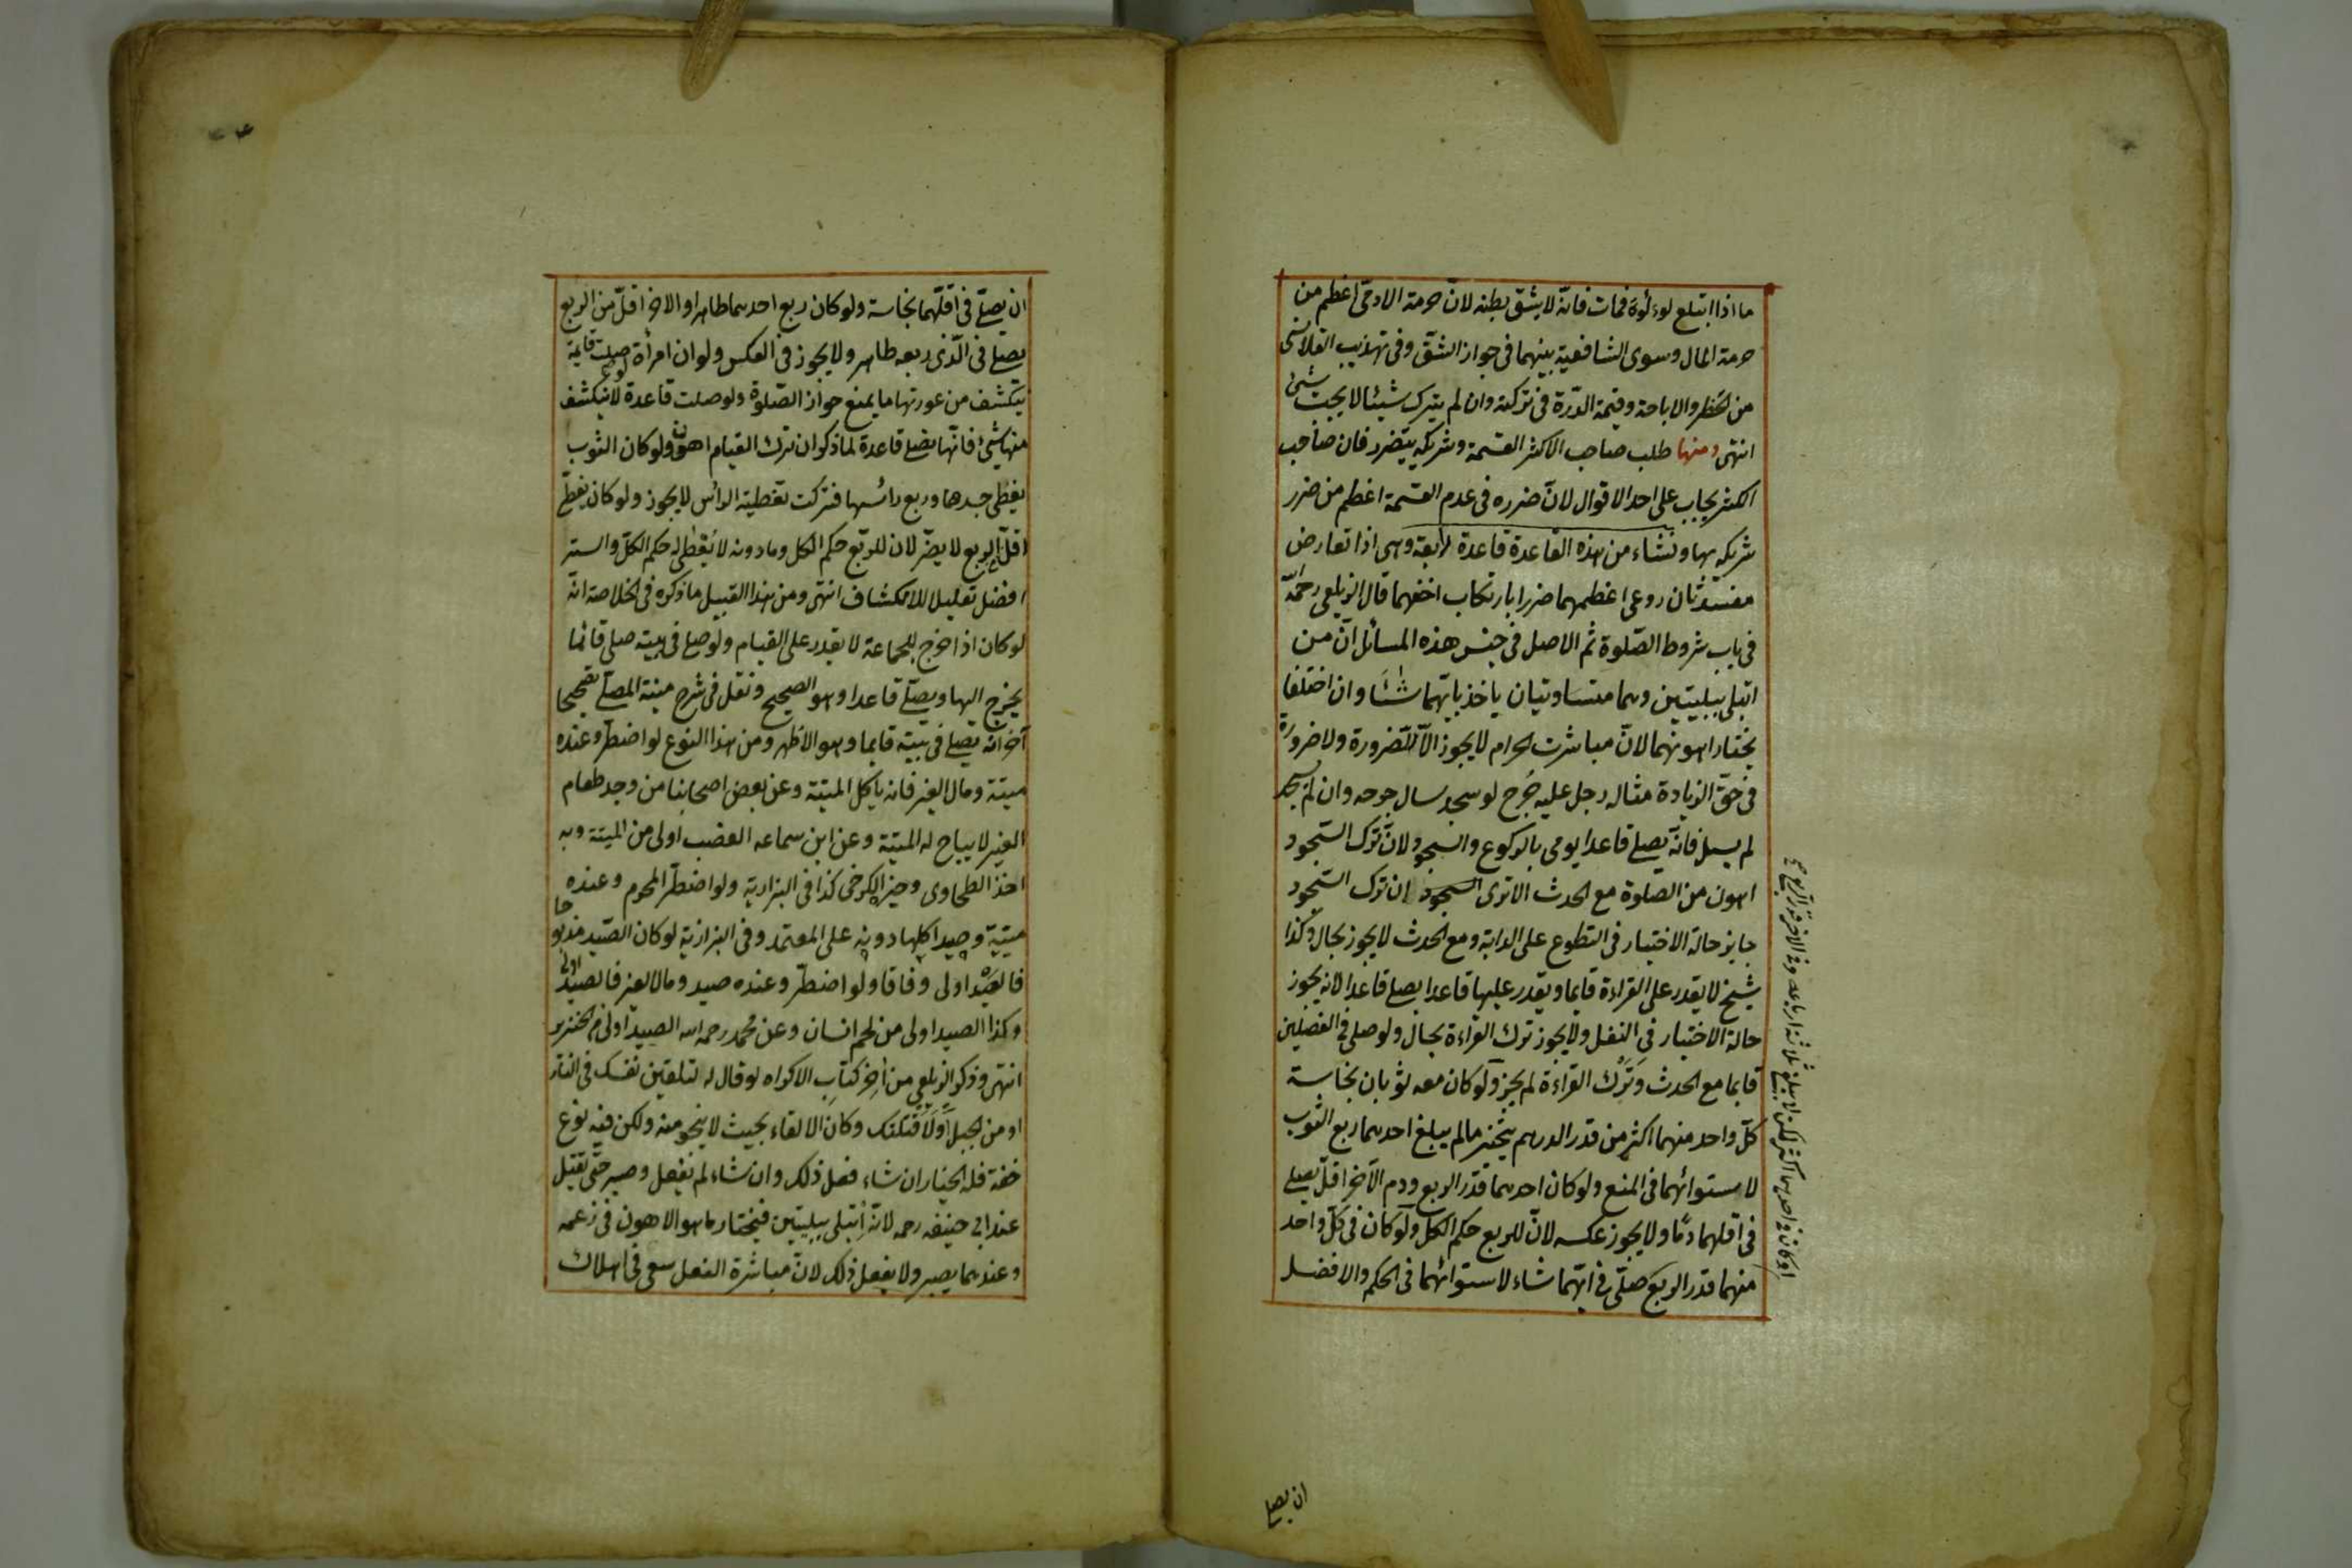 ما اذا ابتلع لوءلؤة فمات فانّه لا يشق بطنه لانّ حرمة الادمىّ اعظم من
حرمة المال وسوى الشافعية بينهما فى جواز الشقّ وفى تهذيب القلانسى
من الحظر والاباحة وقيمة الدّرة فى تركته وان لم يترك شيئا لا يجب شئ
انتهى ومنها طلب صاحب الاكثر القسمة وشريكه يتضرر فان صاحب
الكثير يجاب على احد الاقوال لانّ ضرره فى عدم القسمة اعظم من ضرر
شريكه بها ونشاء من هذه القاعدة قاعدة رابعة وهى اذا تعارض
مفسدتان روعى اعظمهما ضررا بارتكاب اخفهما قال الزيلعى رحمه الله
فى باب شروط الصّلوة ثم الاصل فى جنس هذه المسائل انّ من
ابتلى ببليتين وهما متساويتان ياخذ بايّهما شاء وان اختلفا
يختار اهونهما لانّ مباشرت الحرام لا يجوز الاّ للضّرورة ولا ضرورة
فى حقّ الزيادة مثاله رجل عليه جُرح لو سجد سال جرحه وان لم يسجد
لم يسل فانّه يصلى قاعدا يومى بالركوع والسجود لانّ ترك السّجود
اهون من الصلوة مع الحدث الا ترى السجود ان ترك السّجود
جايز حالة الاختيار فى التطوع على الدابة ومع الحدث لا يجوز بحال وكذا
شيخ لا يقدر على القراءة قايما ويقدر عليها قاعدا يصلى قاعدا لانه يجوز
حالة الاختيار فى النفل ولا يجوز ترك القراءة بحال ولو صلى فى الفصلين
قايما مع الحدث وتَرْك القراءة لم يجز ولو كان معه ثوبان نجاسة
كلّ واحد منهما اكثر من قدر الدرهم يتخير مالم يبلغ احدهما ربع الثوب
لاستوائهما فى المنع ولو كان احدهما قدر الربع ودم الآخر اقلّ يصلى
فى اقلهما دمًا ولا يجوز عكسه لانّ للربع حكم الكل ولو كان فى كلّ واحد
منهما قدر الربع صلّى فى ايّهما شاء لاستوائهما فى الحكم والافضل
او كان فى احديهما اكثر لكن لا يبلغ ثلاثة ارباعه وفى الاخر قدر الربع صح
ان يصلى
ان يصلّى فى اقلّهما نجاسة ولو كان ربع احدهما طاهرا والاخر اقلّ من الربع
يصلى فى الّذى ربعه طاهر ولا يجوز فى العكس ولو ان امرأة صلت قايمة
ينكشف من عورتها ما يمنع جواز الصّلوة ولو صلت قاعدة لا ينكشف
منها شئ فانّها تصلى قاعدة لما ذكر ان ترك القيام اهون ولو كان الثوب
يغطى جسدها وربع رائسها فتركت تغطية الرأس لا يجوز ولو كان يغطى
اقلّ الربع لا يضرّ لان للربع حكم الكل وما دونه لا يعطى له حكم الكلّ والستر
افضل تعليلا للانكشاف انتهى ومن هذا القبيل ما ذكره فى الخلاصة انّه
لو كان اذا خرج للجماعة لا يقدر على القيام ولو صلى فى بيته صلى قائما
يخرج اليها ويصلّى قاعدا وهو الصحيح ونقل فى شرح منية المصلّى تصحيحا
آخر انّه يصلى فى بيته قايما وهو الاظهر ومن هذا النوع لو اضطرّ وعنده
ميتة ومال الغير فانه ياكل الميتة وعن بعض اصحابنا من وجد طعام
الغير لا يباح له الميتة وعن ابن سماعه الغصب اولى من الميتة وبه
اخذ الطحاوى وخير الكرخى كذا فى البزازية ولو اضطرّ المحرم وعنده
ميتة وصيد اكلها دونه على المعتمد وفى البزازية لو كان الصّيد مذبوحا
فالصّيد اولى وفاقا ولو اضطرّ وعنده صيد ومال الغير فالصيد اولى
وكذا الصيد اولى من لحم انسان وعن محمد رحمه الله الصيد اولى من الخنزير
انتهى وذكر الزيلعى من آخر كتاب الاكراه لو قال له لتلقين نفسك فى النار
او من الجبل اولا قتلتك وكان الالقاء بحيث لا ينجو منه ولكن فيه نوع
خفة فله الخيار ان شاء فعل ذلك وان شاء لم يفعل وصبر حتّى يقتل
عند ابى حنيفه رحمه لانّه اُبتلى ببليتين فيختار ما هو الاهون فى زعمه
وعندهما يصبر ولا يفعل ذلك لانّ مباشرة الفعل سعى فى اهلاك